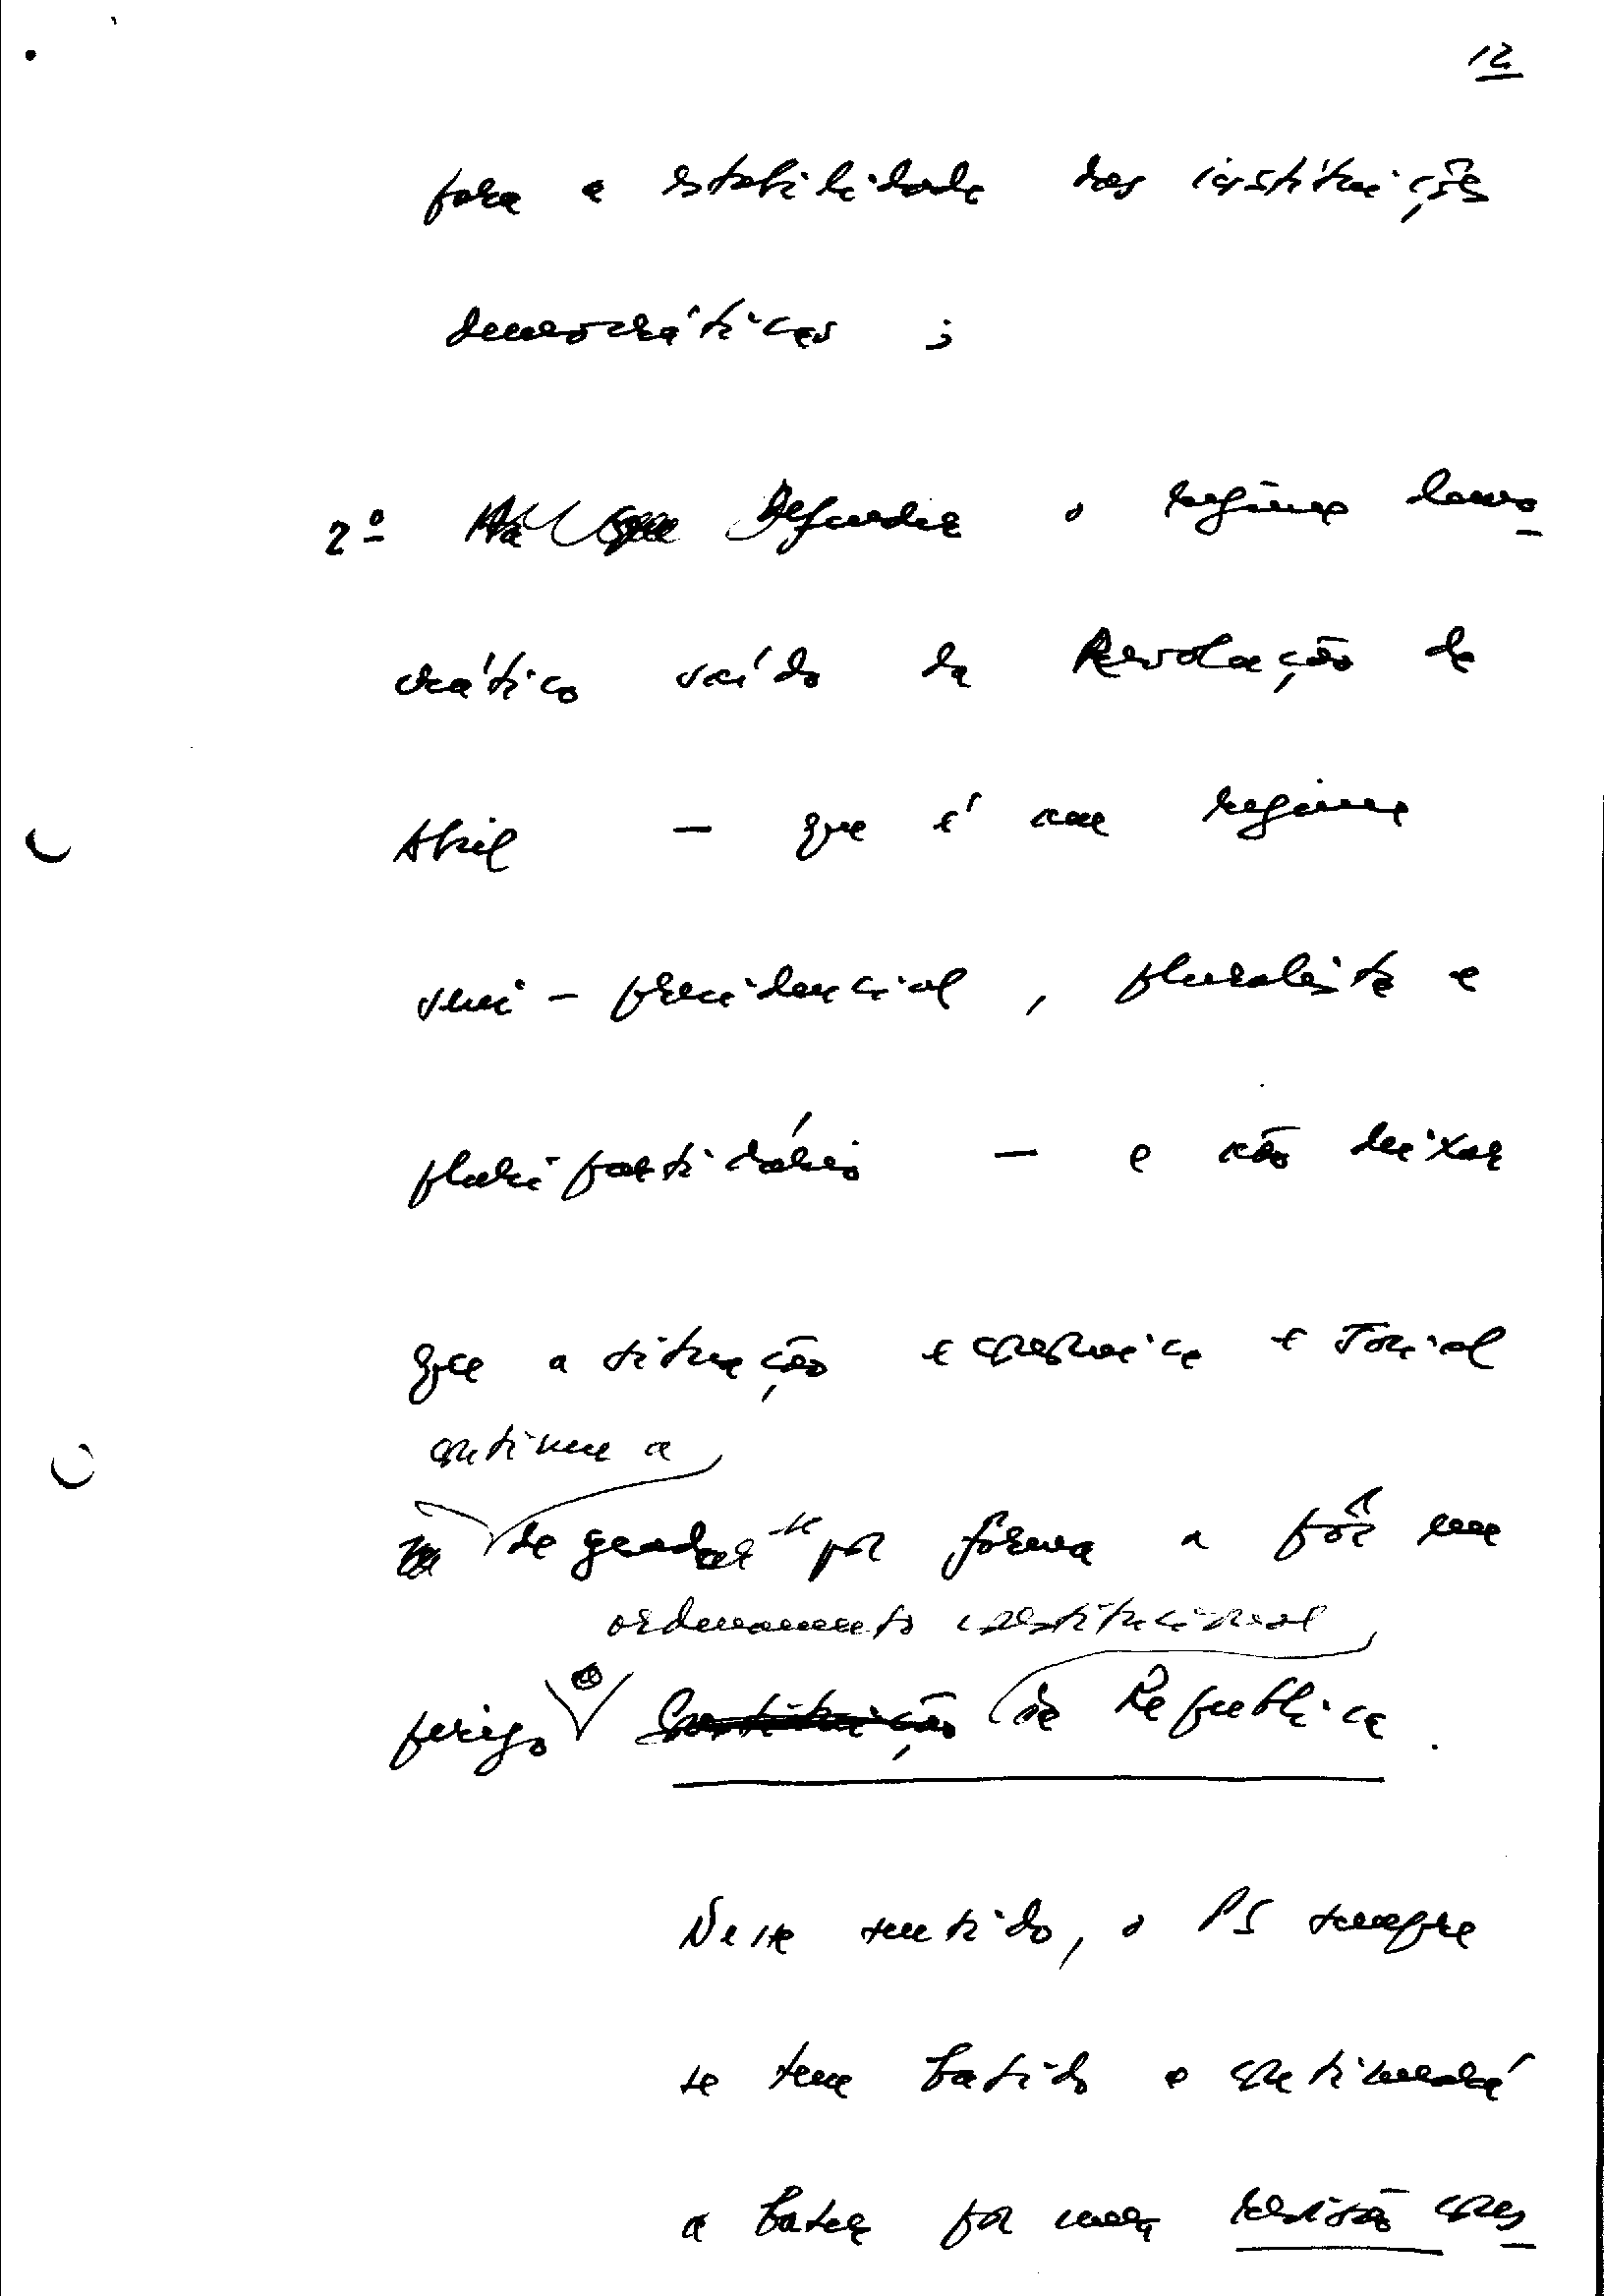 12
para a estabilidade das instituições
democráticas ;
2º Há que Defender o regime demo-
crático saído da Revolução de
Abril — que é um regime
semi-presidencial, pluralista e
pluripartidário — e não deixar
que a situação económica e social
continue a
degradar-se por forma a pôr em
ordenamento constitucional
perigo o Constituição da República.
Neste sentido, o PS sempre
se tem batido e continuará
a bater por uma revisão cons-